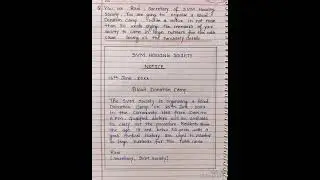 You are Ravi, Secretary of SVM Housing
Society. You are going to organise a Blood
Donation Camp. Write a notice in not more
than 50 words urging the members of your
society to come in large numbers for this noble
cause. Giving all the necessary details.
SVM HOUSING SOCIETY
NOTICE
15th June
Blood Donation Camp
The SVM Society is organising a Blood
Donation Camp on 25th June
in the Community Hall from
6 P.M. Qualified doctors will be available
to carry out the procedure. Residents above
the age 18 and below 50 years with a
good medical history are urged to
in large numbers for this noble cause.
Ravi
(Secretary, SVM Society)